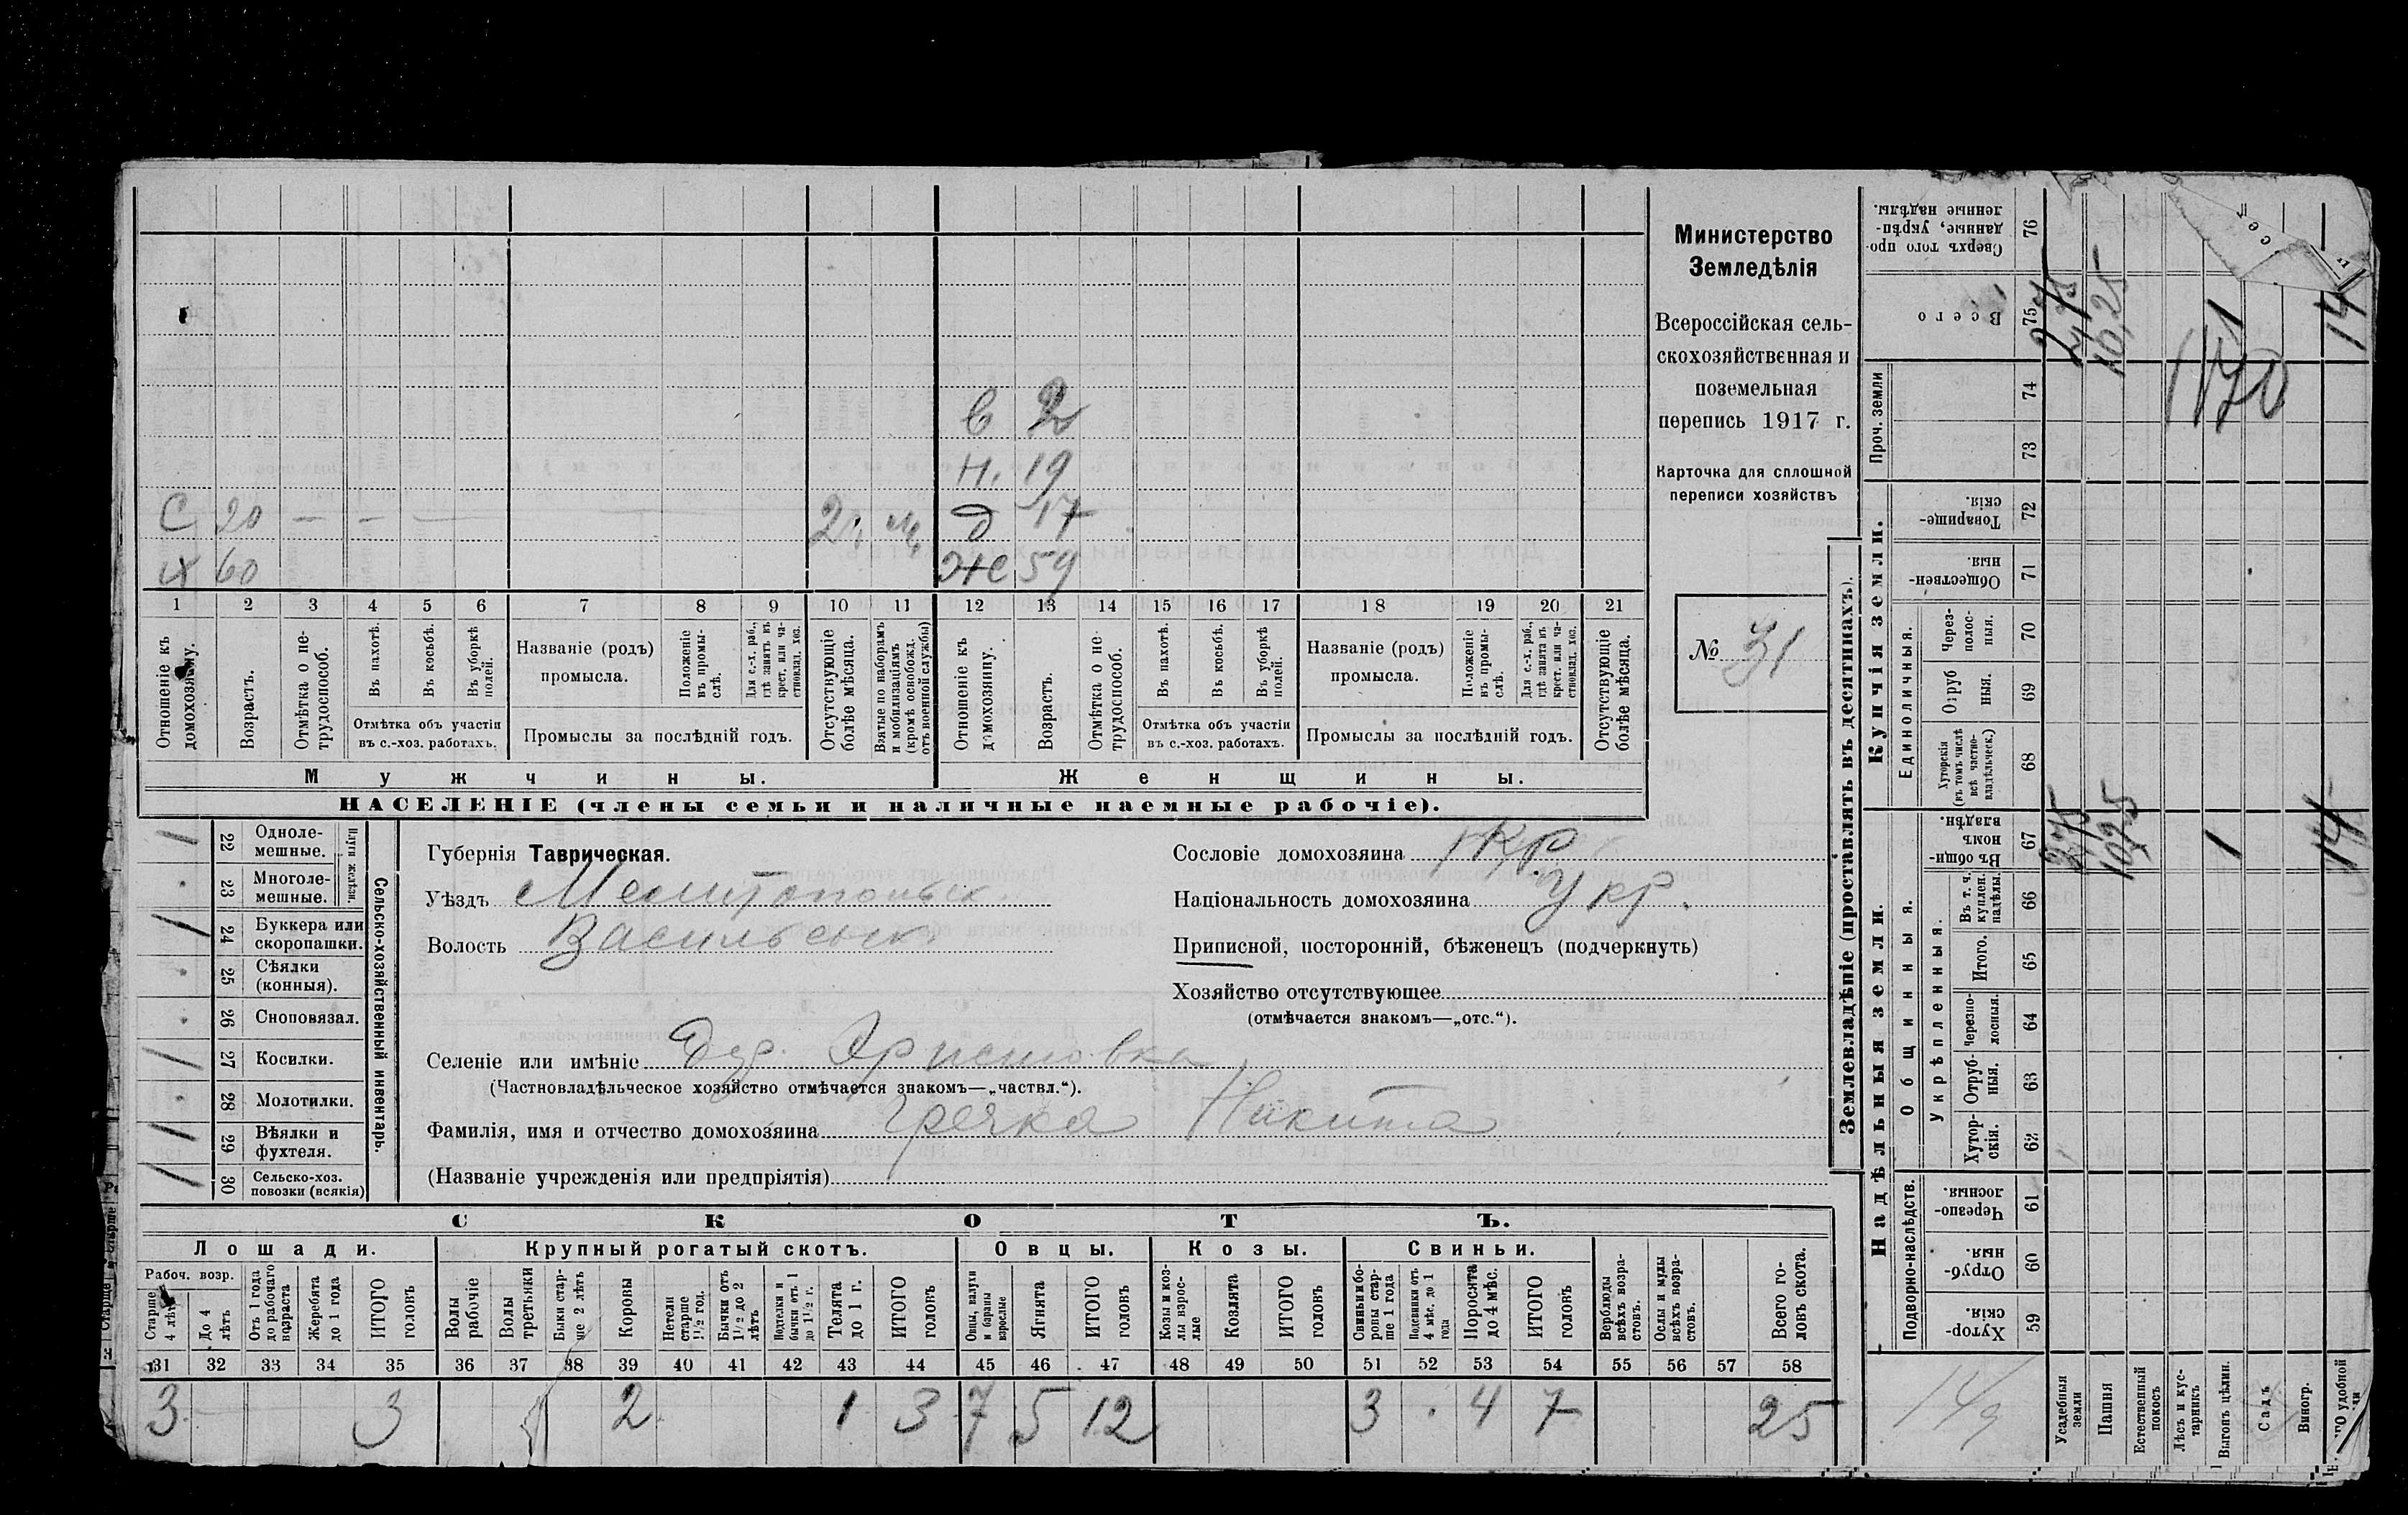 Министерство
Земледѣлія
Всероссійская сель-
скохозяйственная и
поземельная
перепись 1917 г.
Карточка для сплошной
переписи хозяйствъ
№ 31
в 2
н. 19
С 20 — — — 2 м. д 17
х 60 Же 59
1 2 3 4 5 6 7 8 9 10 11 12 13 14 15 16 17 18 19 20 21
Отношеніе къ домохозяину.
Возрастъ.
Отмѣтка о не-трудоспособ.
Въ пахотѣ.
Въ косьбѣ.
Въ уборкѣ полей.
Отмѣтка объ участіи
въ с.-хоз. работахъ.
Названіе (родъ)
промысла.
Положеніе въ промы-слѣ.
Для с.-х. раб., гдѣ занятъ въ крест. или ча-стновлад. хоз.
Промыслы за послѣдній годъ.
Отсутствующіе болѣе мѣсяца.
Взятые по наборамъ и мобилизаціямъ (кромѣ освобожд. отъ военной службы)
Отношеніе къ домохозяину.
Возрастъ.
Отмѣтка о не-трудоспособ.
Въ пахотѣ.
Въ косьбѣ.
Въ уборкѣ полей.
Отмѣтка объ участіи
въ с.-хоз. работахъ.
Названіе (родъ)
промысла.
Положеніе въ промы-слѣ.
Для с.-х. раб., гдѣ занята въ крест. или ча-стновлад. хоз.
Промыслы за послѣдній годъ.
Отсутствующіе болѣе мѣсяца.
Мужчины.
Женщины.
НАСЕЛЕНІЕ (члены семьи и наличные наемные рабочіе).
1 22 Одноле-мешные.
23 Многоле-мешные.
Плуги желѣзн.
1 24 Буккера или скоропашки.
25 Сѣялки (конныя).
26 Сноповязал.
1 27 Косилки.
28 Молотилки.
1 29 Вѣялки и фухтеля.
1 30 Сельско-хоз. повозки (всякія)
Сельско-хозяйственный инвентарь.
Губернія Таврическая.
Уѣздъ Мелитопольск.
Волость Васильевск.
Сословіе домохозяина кр.
Національность домохозяина Укр.
Приписной, посторонній, бѣженецъ (подчеркнуть)
Хозяйство отсутствующее
(отмѣчается знакомъ—„отс.“).
Селеніе или имѣніе
(Частновладѣльческое хозяйство отмѣчается знакомъ—„частвл.“).
Фамилія, имя и отчество домохозяина Гречка Никита
(Названіе учрежденія или предпріятія)
СКОТЪ.
Лошади.
Крупный рогатый скотъ.
Овцы.
Козы.
Свиньи.
Рабоч. возр.
Старше 4 лѣтъ
До 4 лѣтъ
Отъ 1 года до рабочаго возраста
Жеребята до 1 года
ИТОГО головъ
Волы рабочіе
Волы третьяки
Быки стар-ше 2 лѣтъ
Коровы
Нетели старше 1½ год.
Бычки отъ 1½ до 2 лѣтъ
Подтелки и бычки отъ 1 до 1½ г.
Телята до 1 г.
ИТОГО головъ
Овцы, валухи и бараны взрослые
Ягнята
ИТОГО головъ
Козы и коз-лы взрос-лые
Козлята
ИТОГО головъ
Свиньи и бо-ровы стар-ше 1 года
Подсвинки отъ 4 мѣс. до 1 года
Поросята до 4 мѣс.
ИТОГО головъ
Верблюды всѣхъ возра-стовъ.
Ослы и мулы всѣхъ возра-стовъ.
Всего го-ловъ скота.
31 32 33 34 35 36 37 38 39 40 41 42 43 44 45 46 47 48 49 50 51 52 53 54 55 56 57 58
3 3 2 1 3 7 5 12 3 4 7 25
Землевладѣніе (проставлять въ десятинахъ).
Надѣльныя земли.
Купчія земли.
Проч. земли
Подворно-наслѣдств.
Общинныя.
Укрѣпленныя.
Единоличныя.
Хутор-скія. 59
Отруб-ныя. 60
Черезпо-лосныя. 61
Хутор-скія. 62
Отруб-ныя. 63
Черезпо-лосныя. 64
Итого. 65
Въ т. ч. куплен. надѣлы. 66
Въ общин-номъ владѣн. 67
Хуторскія (въ томъ числѣ всѣ частно-владѣльческ.) 68
Отруб ныя. 69
Через-полос-ныя. 70
Обществен-ныя. 71
Товарище-скія. 72
73
74
Всего 75
Сверхъ того про-данные, укрѣп-ленные надѣлы. 76
Усадебныя земли
Пашня 10,25 10,25
Естественный покосъ
Лѣсъ и кус-тарникъ
Выгонъ цѣлин. 1 1
Садъ
Виногр.
14 14